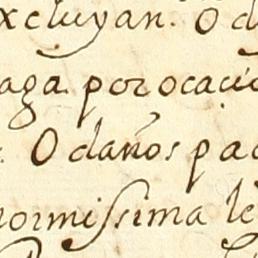 xcluyan. O d
aga. por ocaci
. O daños pa
ormissima le